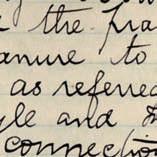 the pra
anure to
as referred
yle and
connection